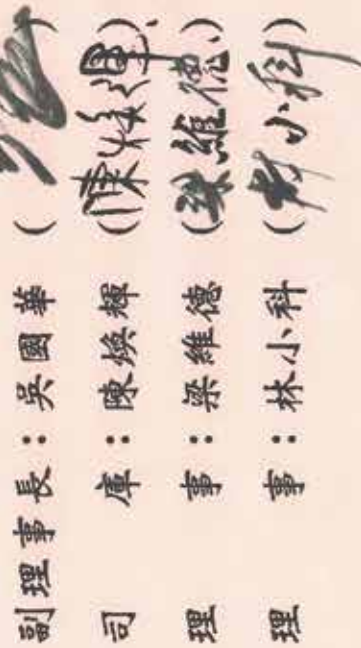 副理事長：吳國華（ ）
司庫：陳煥輝（陳煥輝）
理事：梁維德（梁維德）
理事：林小科（林小科）